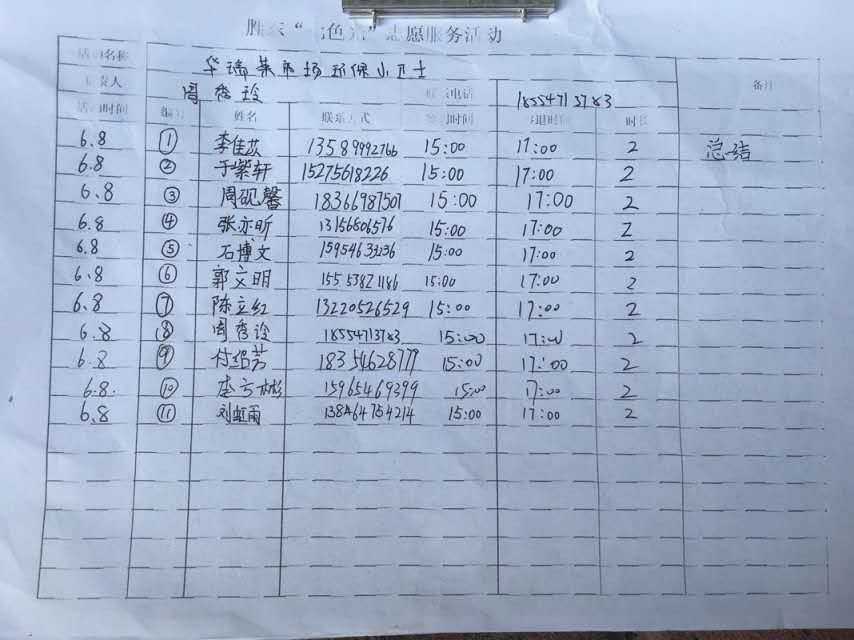 胜东“七色光”志愿服务活动
活动名称 华瑞菜市场环保小卫士 备注
负责人 周秀设 联系电话 18554713783
活动时间 编号 姓名 联系方式 时间 时间 时长
6.8 ① 李佳苡 13589992766 15:00 17:00 2 总结
6.8 ② 于紫轩 15275618226 15:00 17:00 2
6.8 ③ 周砚馨 18366987507 15:00 17:00 2
6.8 ④ 张亦昕 13156806576 15:00 17:00 2
6.8 ⑤ 石博文 15954633236 15:00 17:00 2
6.8 ⑥ 郭文明 15553821186 15:00 17:00 2
6.8 ⑦ 陈立红 13220526529 15:00 17:00 2
6.8 ⑧ 周秀设 18554713783 15:00 17:00 2
6.8 ⑨ 付绍芳 18354628779 15:00 17:00 2
6.8. ⑩ 15965469399 15:00 17:00 2
6.8 ⑪ 刘虹雨 138464754214 15:00 17:00 2